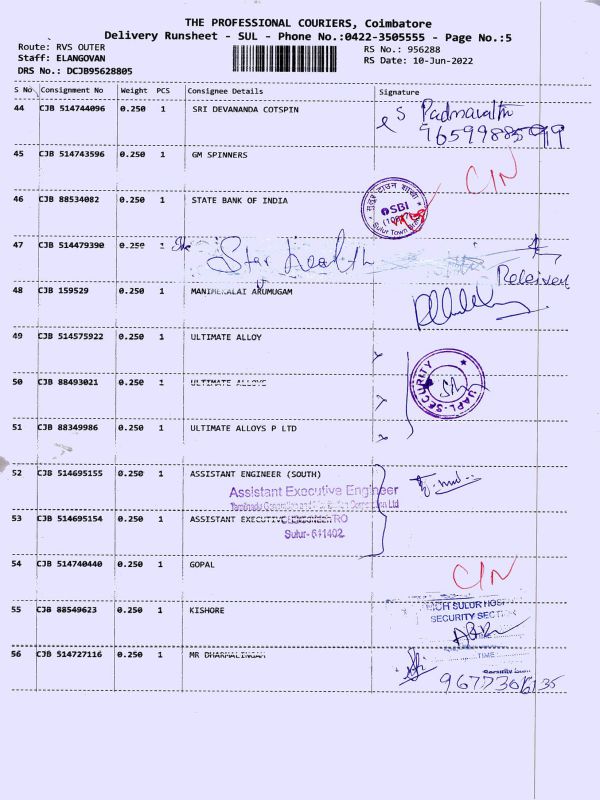 THE PROFESSIONAL COURIERS, Coimbatore
Delivery Runsheet - SUL - Phone No.:0422-3505555 - Page No.:5
Route: RVS OUTER
Staff: ELANGOVAN
DRS No.: DCJB95628805
RS No.: 956288
RS Date: 10-Jun-2022
S No Consignment No Weight PCS Consignee Details Signature
44 CJB 514744096 0.250 1 SRI DEVANANDA COTSPIN
45 CJB 514743596 0.250 1 GM SPINNERS
CIN
46 CJB 88534082 0.250 1 STATE BANK OF INDIA
SBI
Sulur Town
47 CJB 514479390 0.250 1 Star Health
Received
48 CJB 159529 0.250 1 MANIMEKALAI ARUMUGAM
49 CJB 514575922 0.250 1 ULTIMATE ALLOY
50 CJB 88493021 0.250 1 ULTIMATE ALLOYS
UAPL-SECURITY
51 CJB 88349986 0.250 1 ULTIMATE ALLOYS P LTD
52 CJB 514695155 0.250 1 ASSISTANT ENGINEER (SOUTH)
Assistant Executive Engineer
53 CJB 514695154 0.250 1 ASSISTANT EXECUTIVE
Sulur-641402
54 CJB 514740440 0.250 1 GOPAL
CIN
55 CJB 88549623 0.250 1 KISHORE
SULUR
SECURITY SECTION
TIME
56 CJB 514727116 0.250 1 MR DHARMALINGAM
9677306135